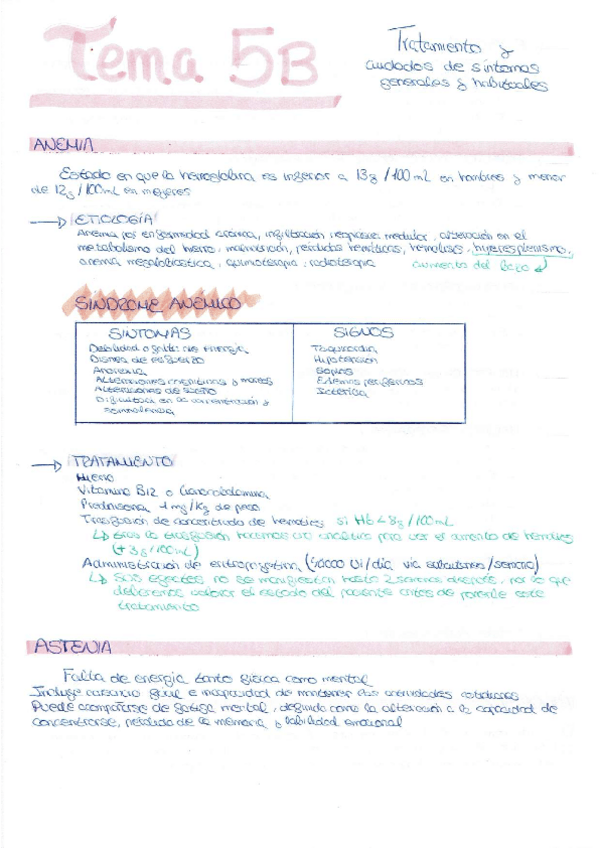 Tema 5B
Tratamiento y
cuidados de síntomas
generales y habituales
ANEMIA
Estado en que la hemoglobina es inferior a 13g/100 mL en hombres y menor
de 12g/100mL en mujeres
→ ETIOLOGÍA
Anemia por enfermedad crónica, infiltración neoplásica medular, alteración en el
metabolismo del hierro, malnutrición, pérdidas hemáticas, hemólisis, hiperesplenismo,
anemia megaloblástica, quimioterapia, radioterapia aumento del bazo
SÍNDROME ANÉMICO
SÍNTOMAS
Debilidad o falta de energía
Disnea de esfuerzo
Anorexia
Alteraciones cognitivas y mareos
Alteraciones de sueño
Dificultad en la concentración y
somnolencia
SIGNOS
Taquicardia
Hipotensión
Soplos
Edemas periféricos
Ictericia
→ TRATAMIENTO
Hierro
Vitamina B12 o Cianocobalamina
Prednisona 1 mg/Kg de peso
Trasfusión de concentrado de hematíes si Hb < 8g/100mL
↳ Tras la trasfusión hacemos una analítica para ver el aumento de hematíes
(+3g/100mL)
Administración de eritropoyetina (40000 UI/día vía subcutánea/semana)
↳ Sus efectos no se manifiestan hasta 2 semanas después, por lo que
deberemos valorar el estado del paciente antes de ponerle este
tratamiento
ASTENIA
Falta de energía tanto física como mental
Incluye cansancio gral e incapacidad de mantener las actividades cotidianas
Puede acompañarse de fatiga mental, definida como la alteración a la capacidad de
concentrarse, pérdida de la memoria y labilidad emocional